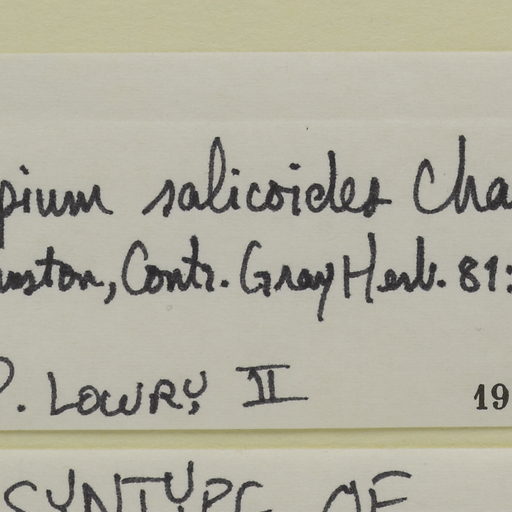 pium salicoides Cha
nston, Contr. Gray Herb. 81:
P. Lowry, II 19
SYNTYPE OF